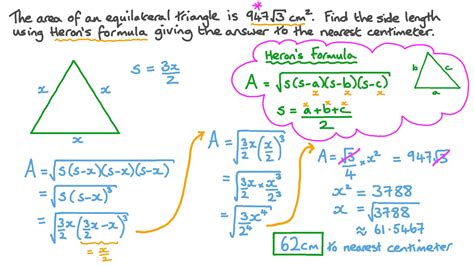 The area of an equilateral triangle is 947√3 cm². Find the side length
using Heron's formula giving the answer to the nearest centimeter.
*
x
x
x
s = 3x/2
Heron's Formula
A = √(s(s-a)(s-b)(s-c))
x x x
s = (a+b+c)/2
x x x
b
c
a
A = √(s(s-x)(s-x)(s-x))
= √(s(s-x)³)
= √(3x/2 (3x/2 - x)³)
= x/2
A = √(3x/2 (x/2)³)
= √(3x/2 × x³/2³)
= √(3x⁴/2⁴)
A = √3/4 × x² = 947√3
x² = 3788
x = √3788
≈ 61.5467
62cm to nearest centimeter